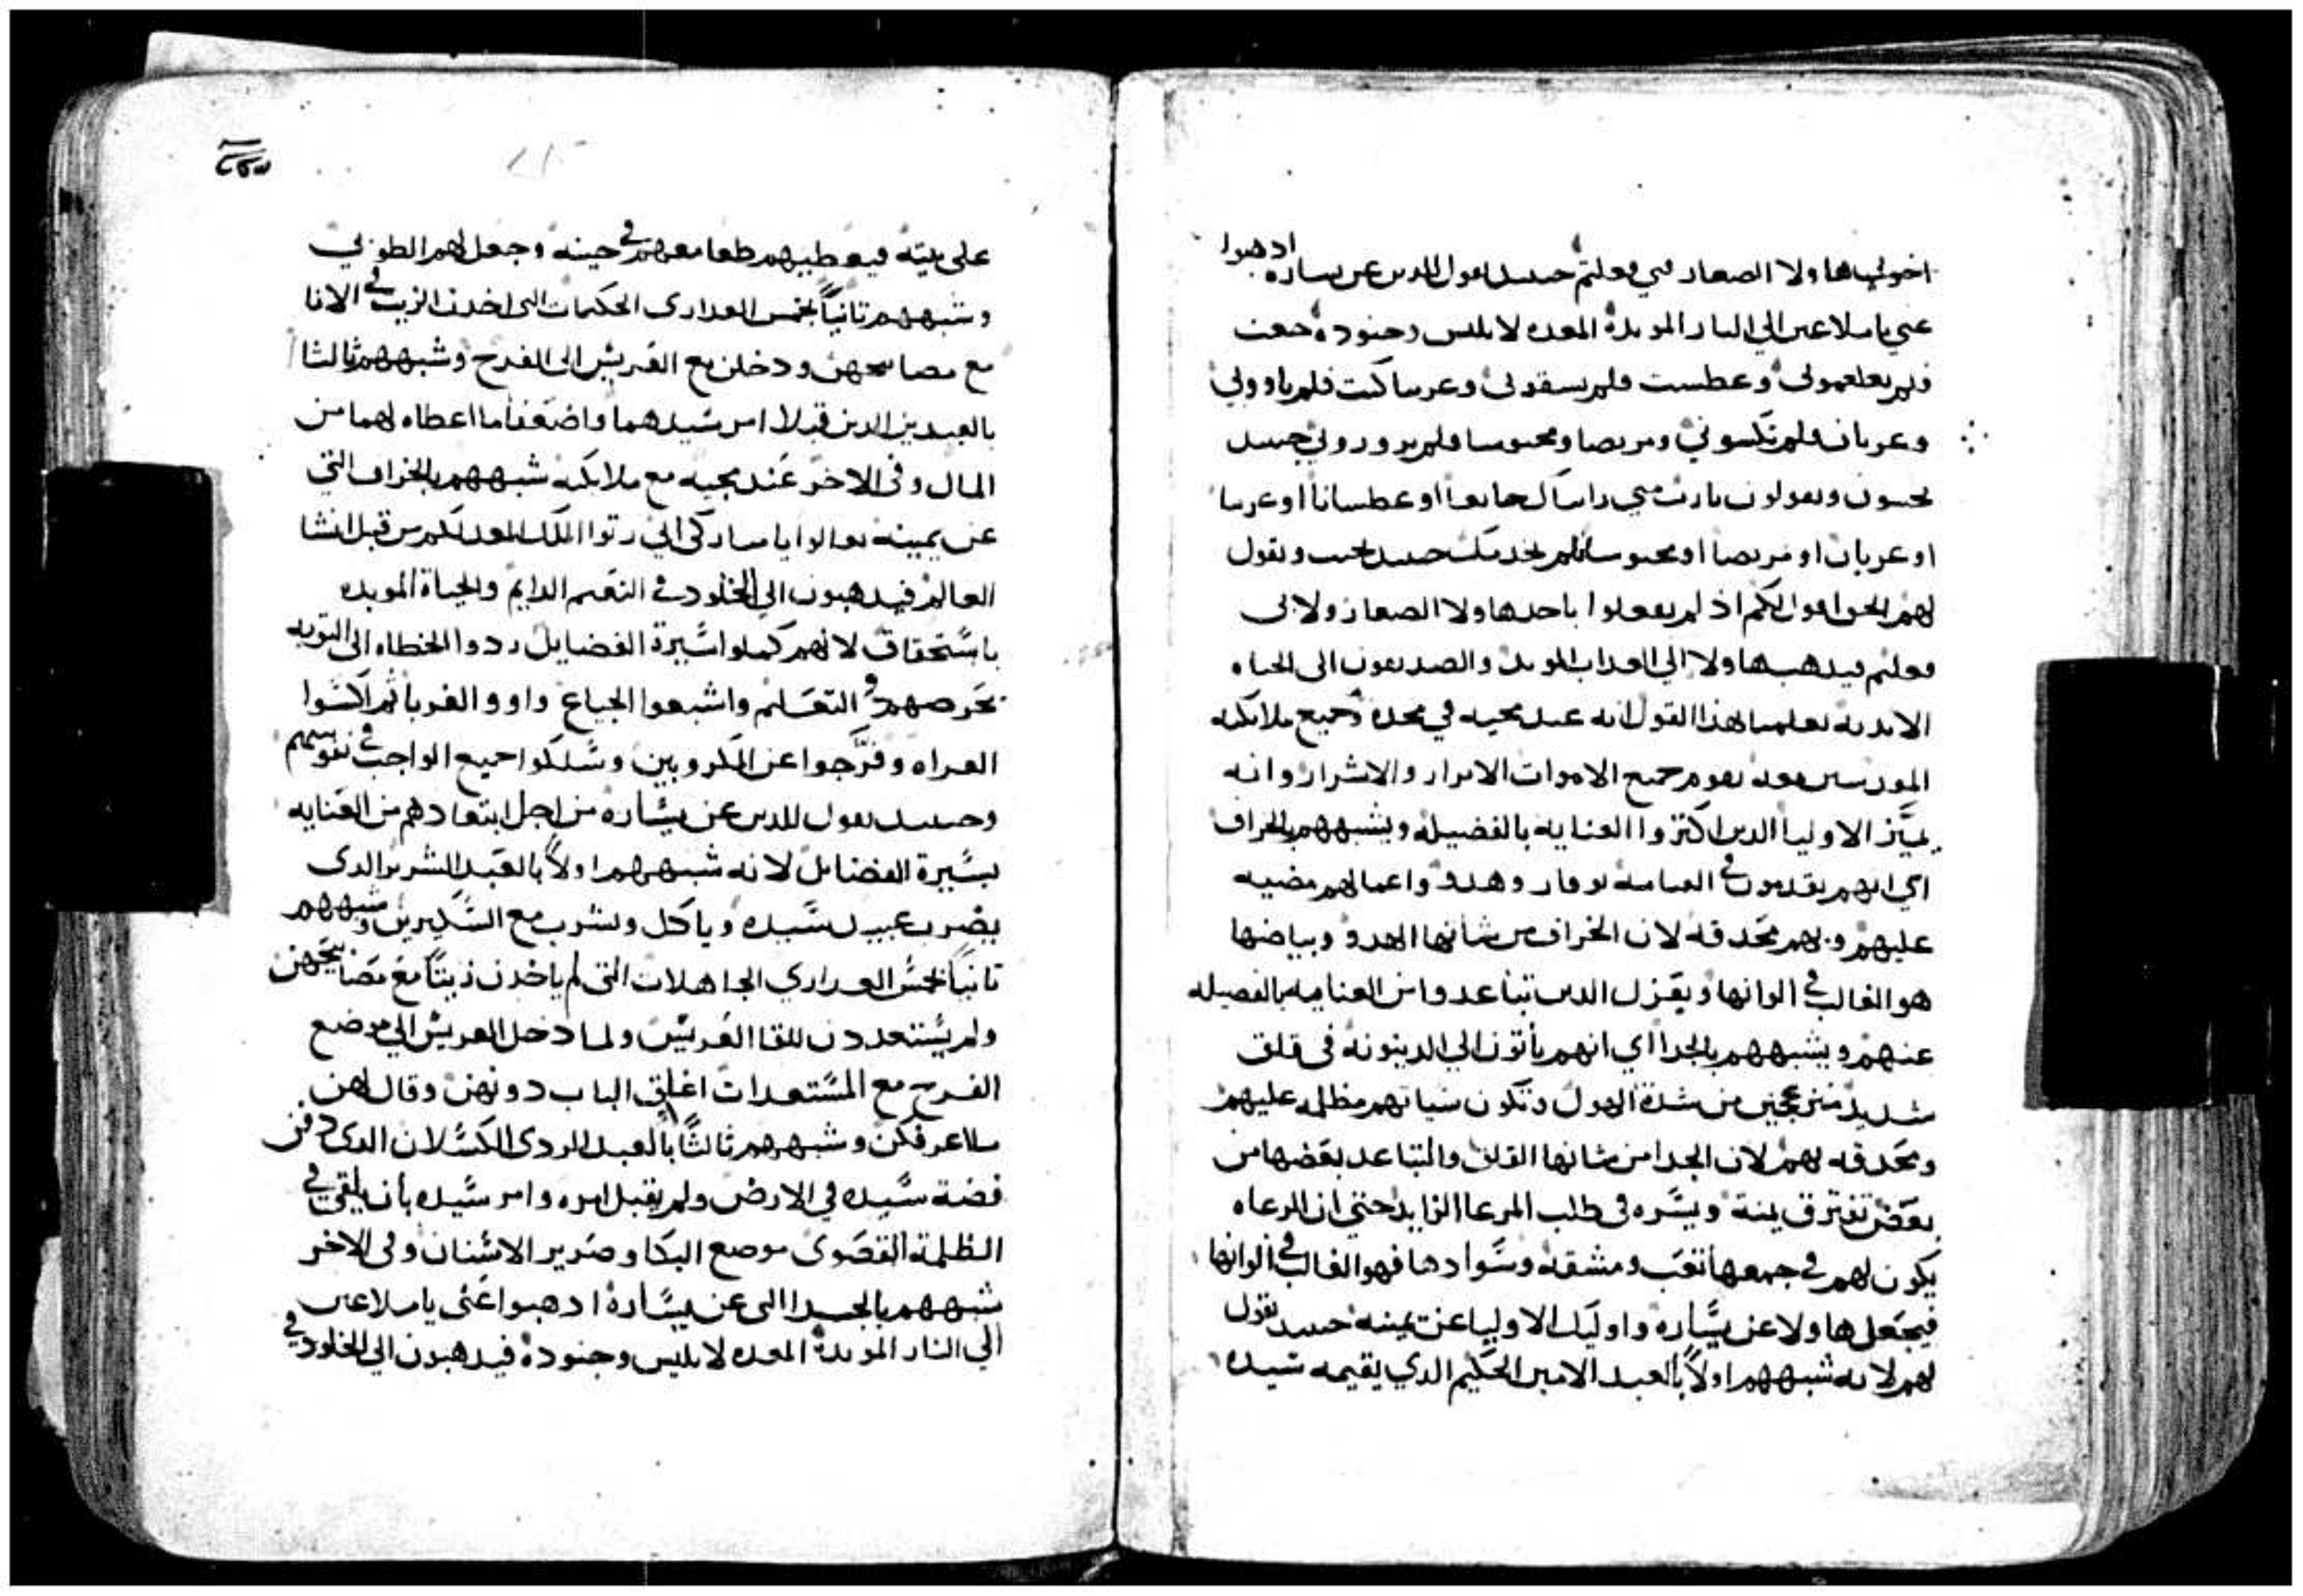 اخوتي هاولا الصغار فبي فعلتم حينيد يقول للدين عن يساره ادهبوا
عني يا ملاعين الي النار الموبدة المعده لابليس وجنوده جعت
فلم تطعموني وعطست فلم تسقوني وغريبا كنت فلم تاووني
وعريان فلم تكسوني ومريضا ومحبوسا فلم تزوروني حينيد
يجيبون ويقولون يارب متي رايناك جايعا او عطسانا او غريبا
او عريان او مريضا او محبوسا فلم نخدمك حينيد يجيب ويقول
لهم الحق اقول لكم اذ لم تفعلوا باحد هاولا الصغار ولا بي
فعلتم فيدهب هاولا الي العداب الموبد والصديقون الى الحياه
الابديه يعلمنا بهذا القول انه عند مجيه في مجده وجميع ملايكته
المقدسين معه يقوم جميع الاموات الابرار والاشرار وانه
يميّز الاوليا الدين اكتروا العنايه بالفضيله ويشبههم بالخراف
اي انهم يقدمون في القيامه بوقار وهدو واعمالهم مضيه
عليهم وبهم محدقه لان الخراف من شانها الهدو وبياضها
هو الغالب في الوانها ويعزل الدين تباعدوا من العنايه بالفصيله
عنهم ويشبههم بالجدا اي انهم يأتون الي الدينونه في قلق
شديد منزعجين من شدة الهول وتكون سياتهم مظلمه عليهم
ومحدقه بهم لان الجدا من شانها القلق والتباعد بعضها من
بعض تفترق يمنة ويسره في طلب المرعا الزايد حتي ان الرعاه
يكون لهم في جمعها تعب ومشقه وسوادها فهو الغالب في الوانها
فيجعل هاولا عن يساره واوليك الاوليا عن يمينه حينيد يقول
لهم لانه شبههم اولاً بالعبد الامين الحكيم الدي يقيمه سيده
على بيته فيعطيهم طعامهم في حينه وجعل لهم الطوبي
وشبههم تانياً بخمس العدارى الحكيمات التي اخدن الزيت في الانا
مع مصابيحهن ودخلن مع العريس الى الفرح وشبههم ثالثا
بالعبدين الدين قبلا امر سيدهما واضعفا ما اعطاه لهما من
المال وفي الاخر عند مجيه مع ملايكته شبههم بالخراف التي
عن يمينه تعالوا يا مباركي ابي رتوا الملك المعد لكم من قبل انشا
العالم فيدهبون الي الخلود في النعيم الدايم والحياة الموبده
باستحقاق لانهم كملوا سيرة الفضايل ردوا الخطاه الى التوبه
بحرصهم في التعليم واشبعوا الجياع واووا الغربا ثم اكسوا
العراه وفرّجوا عن المكروبين وسلكوا جميع الواجب في نفوسهم
وحينيد يقول للدين عن يساره من اجل ابتعادهم من العنايه
بسيرة الفضايل لانه شبههم اولاً بالعبد الشرير الدى
يضرب عبيد سيده وياكل ويشرب مع السكيرين وشبههم
تانياً بخمس العداري الجاهلات التي لم ياخدن زيتاً مع مصابيحهن
ولم يستعددن للقا العريس ولما دخل العريس الي موضع
الفرح مع المستعدات اغلق الباب دونهن وقال لهن
ما اعرفكن وشبههم ثالثاً بالعبد الردى الكسلان الدى دفن
فضة سيده في الارض ولم يقبل امره وامر سيده بأن يلقى في
الظلمة القصوى موضع البكا وصرير الاسنان وفي الاخر
شبههم بالجدا التى عن يساره ادهبوا عني يا ملاعين
الي النار الموبدة المعده لابليس وجنوده فيدهبون الي الخلود في